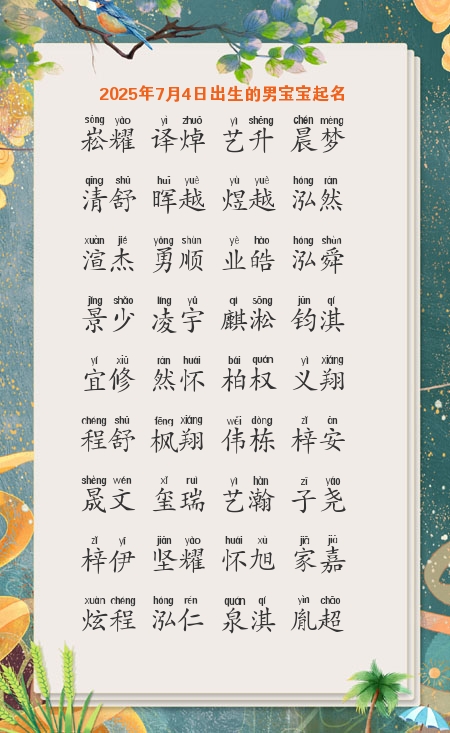 2025年7月4日出生的男宝宝起名
sōng yào yì zhuō yì shēng chén mèng
崧耀 译焯 艺升 晨梦
qīng shū huī yuè yù yuè hóng rán
清舒 晖越 煜越 泓然
xuān jié yǒng shùn yè hào hóng shùn
渲杰 勇顺 业皓 泓舜
jǐng shào líng yǔ qí sōng jūn qí
景少 凌宇 麒淞 钧淇
yí xiū rán huái bǎi quán yì xiáng
宜修 然怀 柏权 义翔
chéng shū fēng xiáng wěi dòng zǐ ān
程舒 枫翔 伟栋 梓安
shèng wén xǐ ruì yì hàn zǐ yáo
晟文 玺瑞 艺瀚 子尧
zǐ yī jiān yào huái xù jiā jiā
梓伊 坚耀 怀旭 家嘉
xuàn chéng hóng rén quán qí yìn chāo
炫程 泓仁 泉淇 胤超